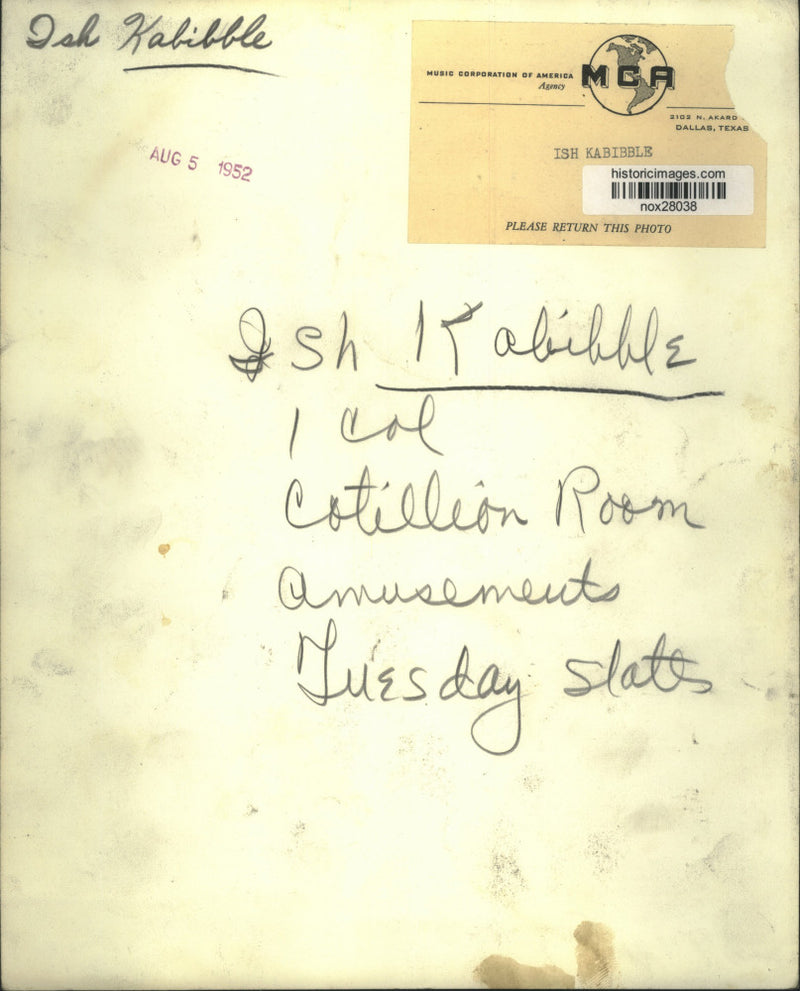 Ish Kabibble
MUSIC CORPORATION OF AMERICA
Agency
MCA
2102 N. AKARD
DALLAS, TEXAS
ISH KABIBBLE
historicimages.com
nox28038
PLEASE RETURN THIS PHOTO
AUG 5 1952
Ish Kabibble
1 Col
Cotillion Room
Amusements
Tuesday